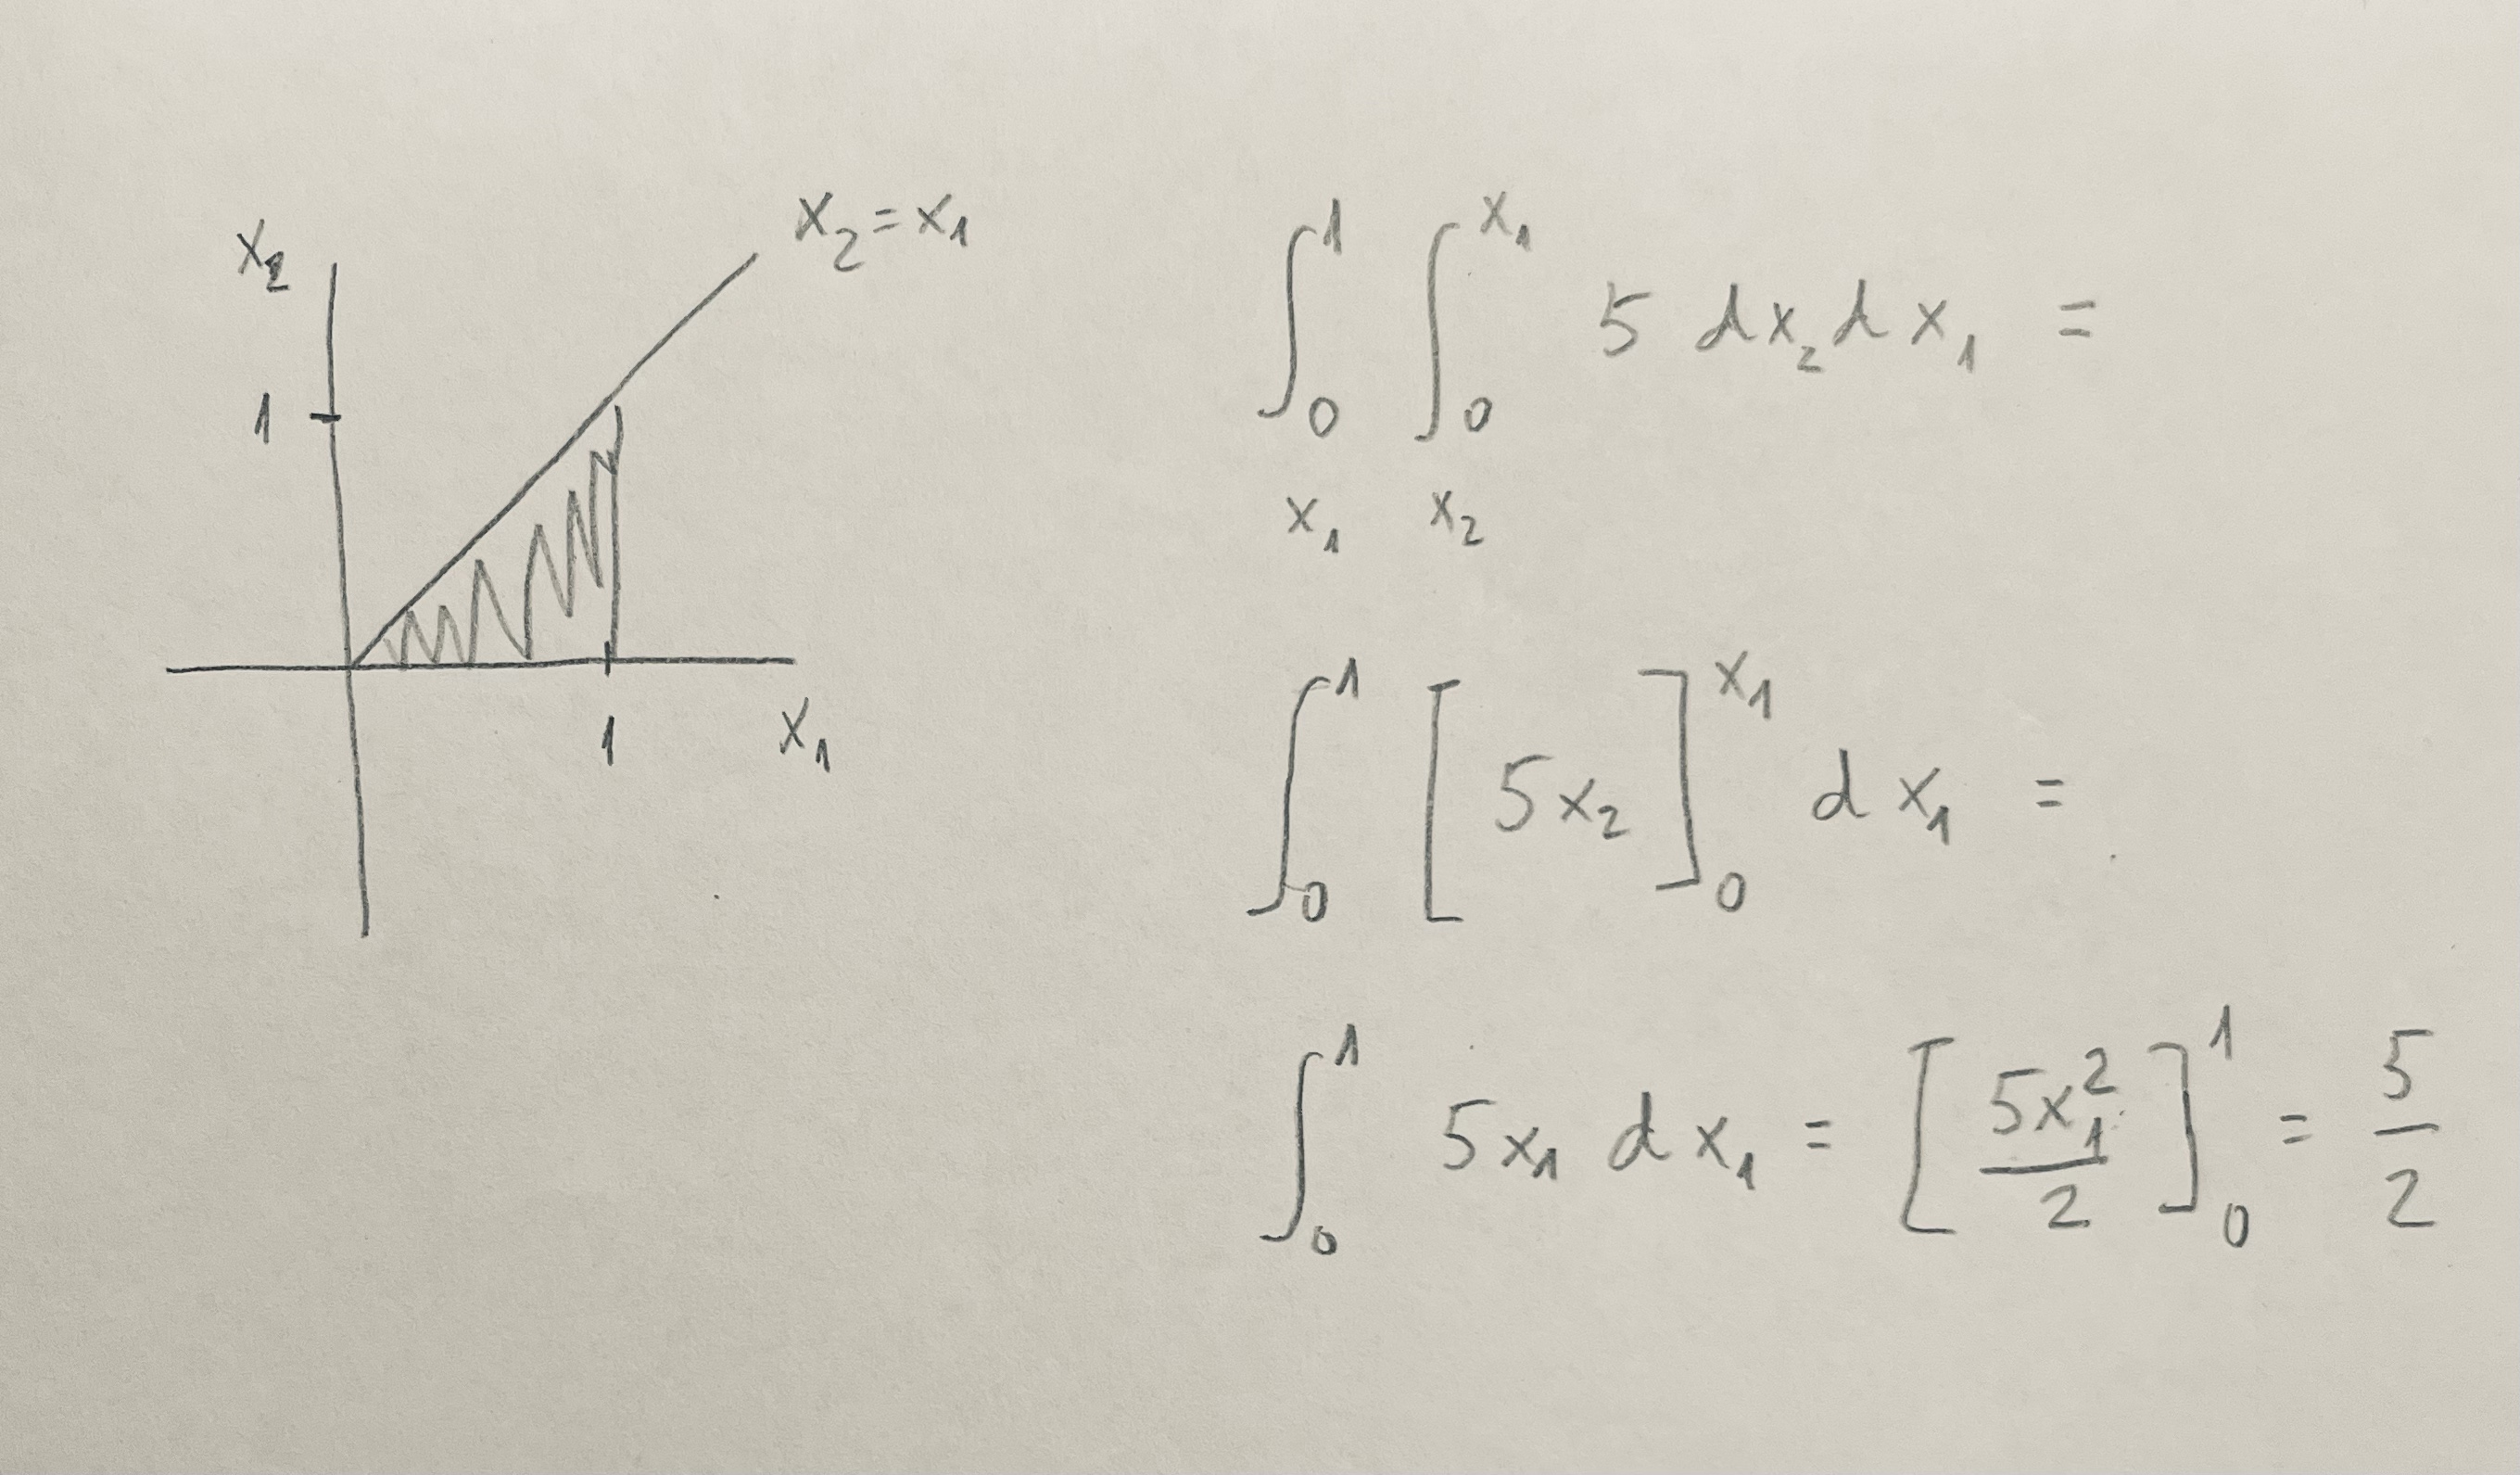 x₂ = x₁
x₂
1
1
x₁
∫₀¹ ∫₀^x₁ 5 dx₂ dx₁ =
x₁ x₂
∫₀¹ [5x₂]₀^x₁ dx₁ =
∫₀¹ 5x₁ dx₁ = [5x₁²/2]₀¹ = 5/2